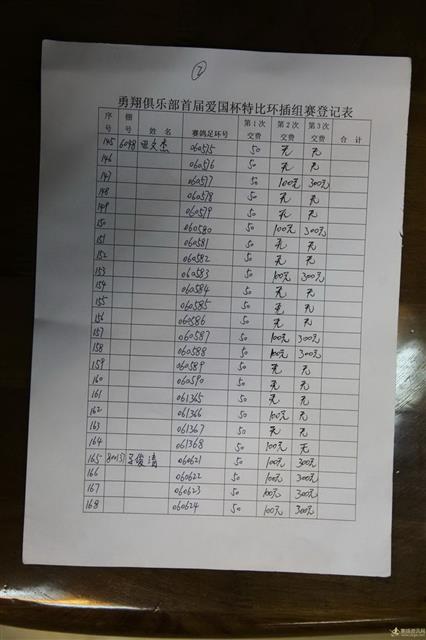 ②
勇翔俱乐部首届爱国杯特比环插组赛登记表
序号 棚号 姓名 赛鸽足环号 第1次交费 第2次交费 第3次交费 合计
145 6098 文杰 060575 50 无 无
146 060576 50 无 无
147 060577 50 100元 300元
148 060578 50 无 无
149 060579 50 无 无
150 060580 50 100元 300元
151 060581 50 无 无
152 060582 50 无 无
153 060583 50 100元 300元
154 060584 50 无 无
155 060585 50 无 无
156 060586 50 无 无
157 060587 50 100元 300元
158 060588 50 100元 300元
159 060589 50 无 无
160 060590 50 无 无
161 061365 50 无 无
162 061366 50 100元 无
163 061367 50 无 无
164 061368 50 100元 无
165 80131 吴俊清 060621 50 100元 300元
166 060622 50 100元 300元
167 060623 50 100元 300元
168 060624 50 100元 300元